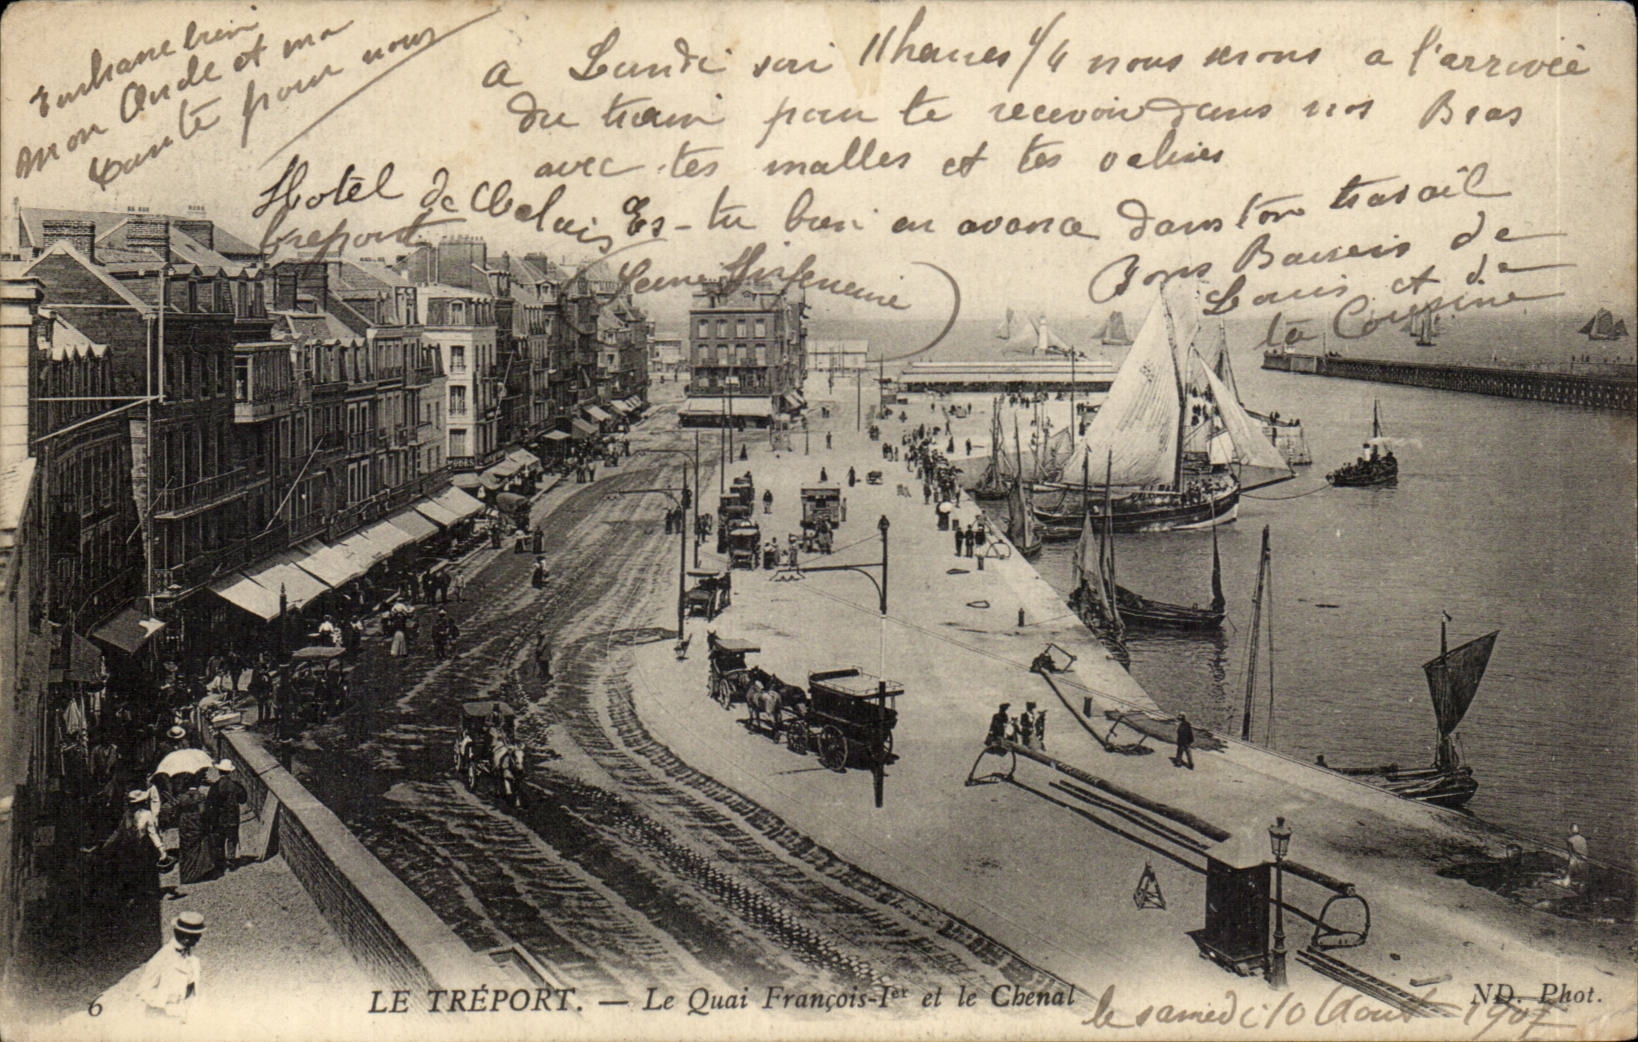 Embrasse bien
mon Oncle et ma
tante pour nous
a Lundi soir 11 heures 1/4 nous serons a l'arrivée
du train pour te recevoir dans nos Bras
avec tes malles et tes valises
Hotel de Calais
Treport
Es-tu bien en avance dans ton travail
(Seine Inferieure)
Bons Baisers de
Louis et de
ta Cousine
MODES
6
LE TRÉPORT. — Le Quai François-Ier et le Chenal
ND. Phot.
le samedi 10 Aout 1907